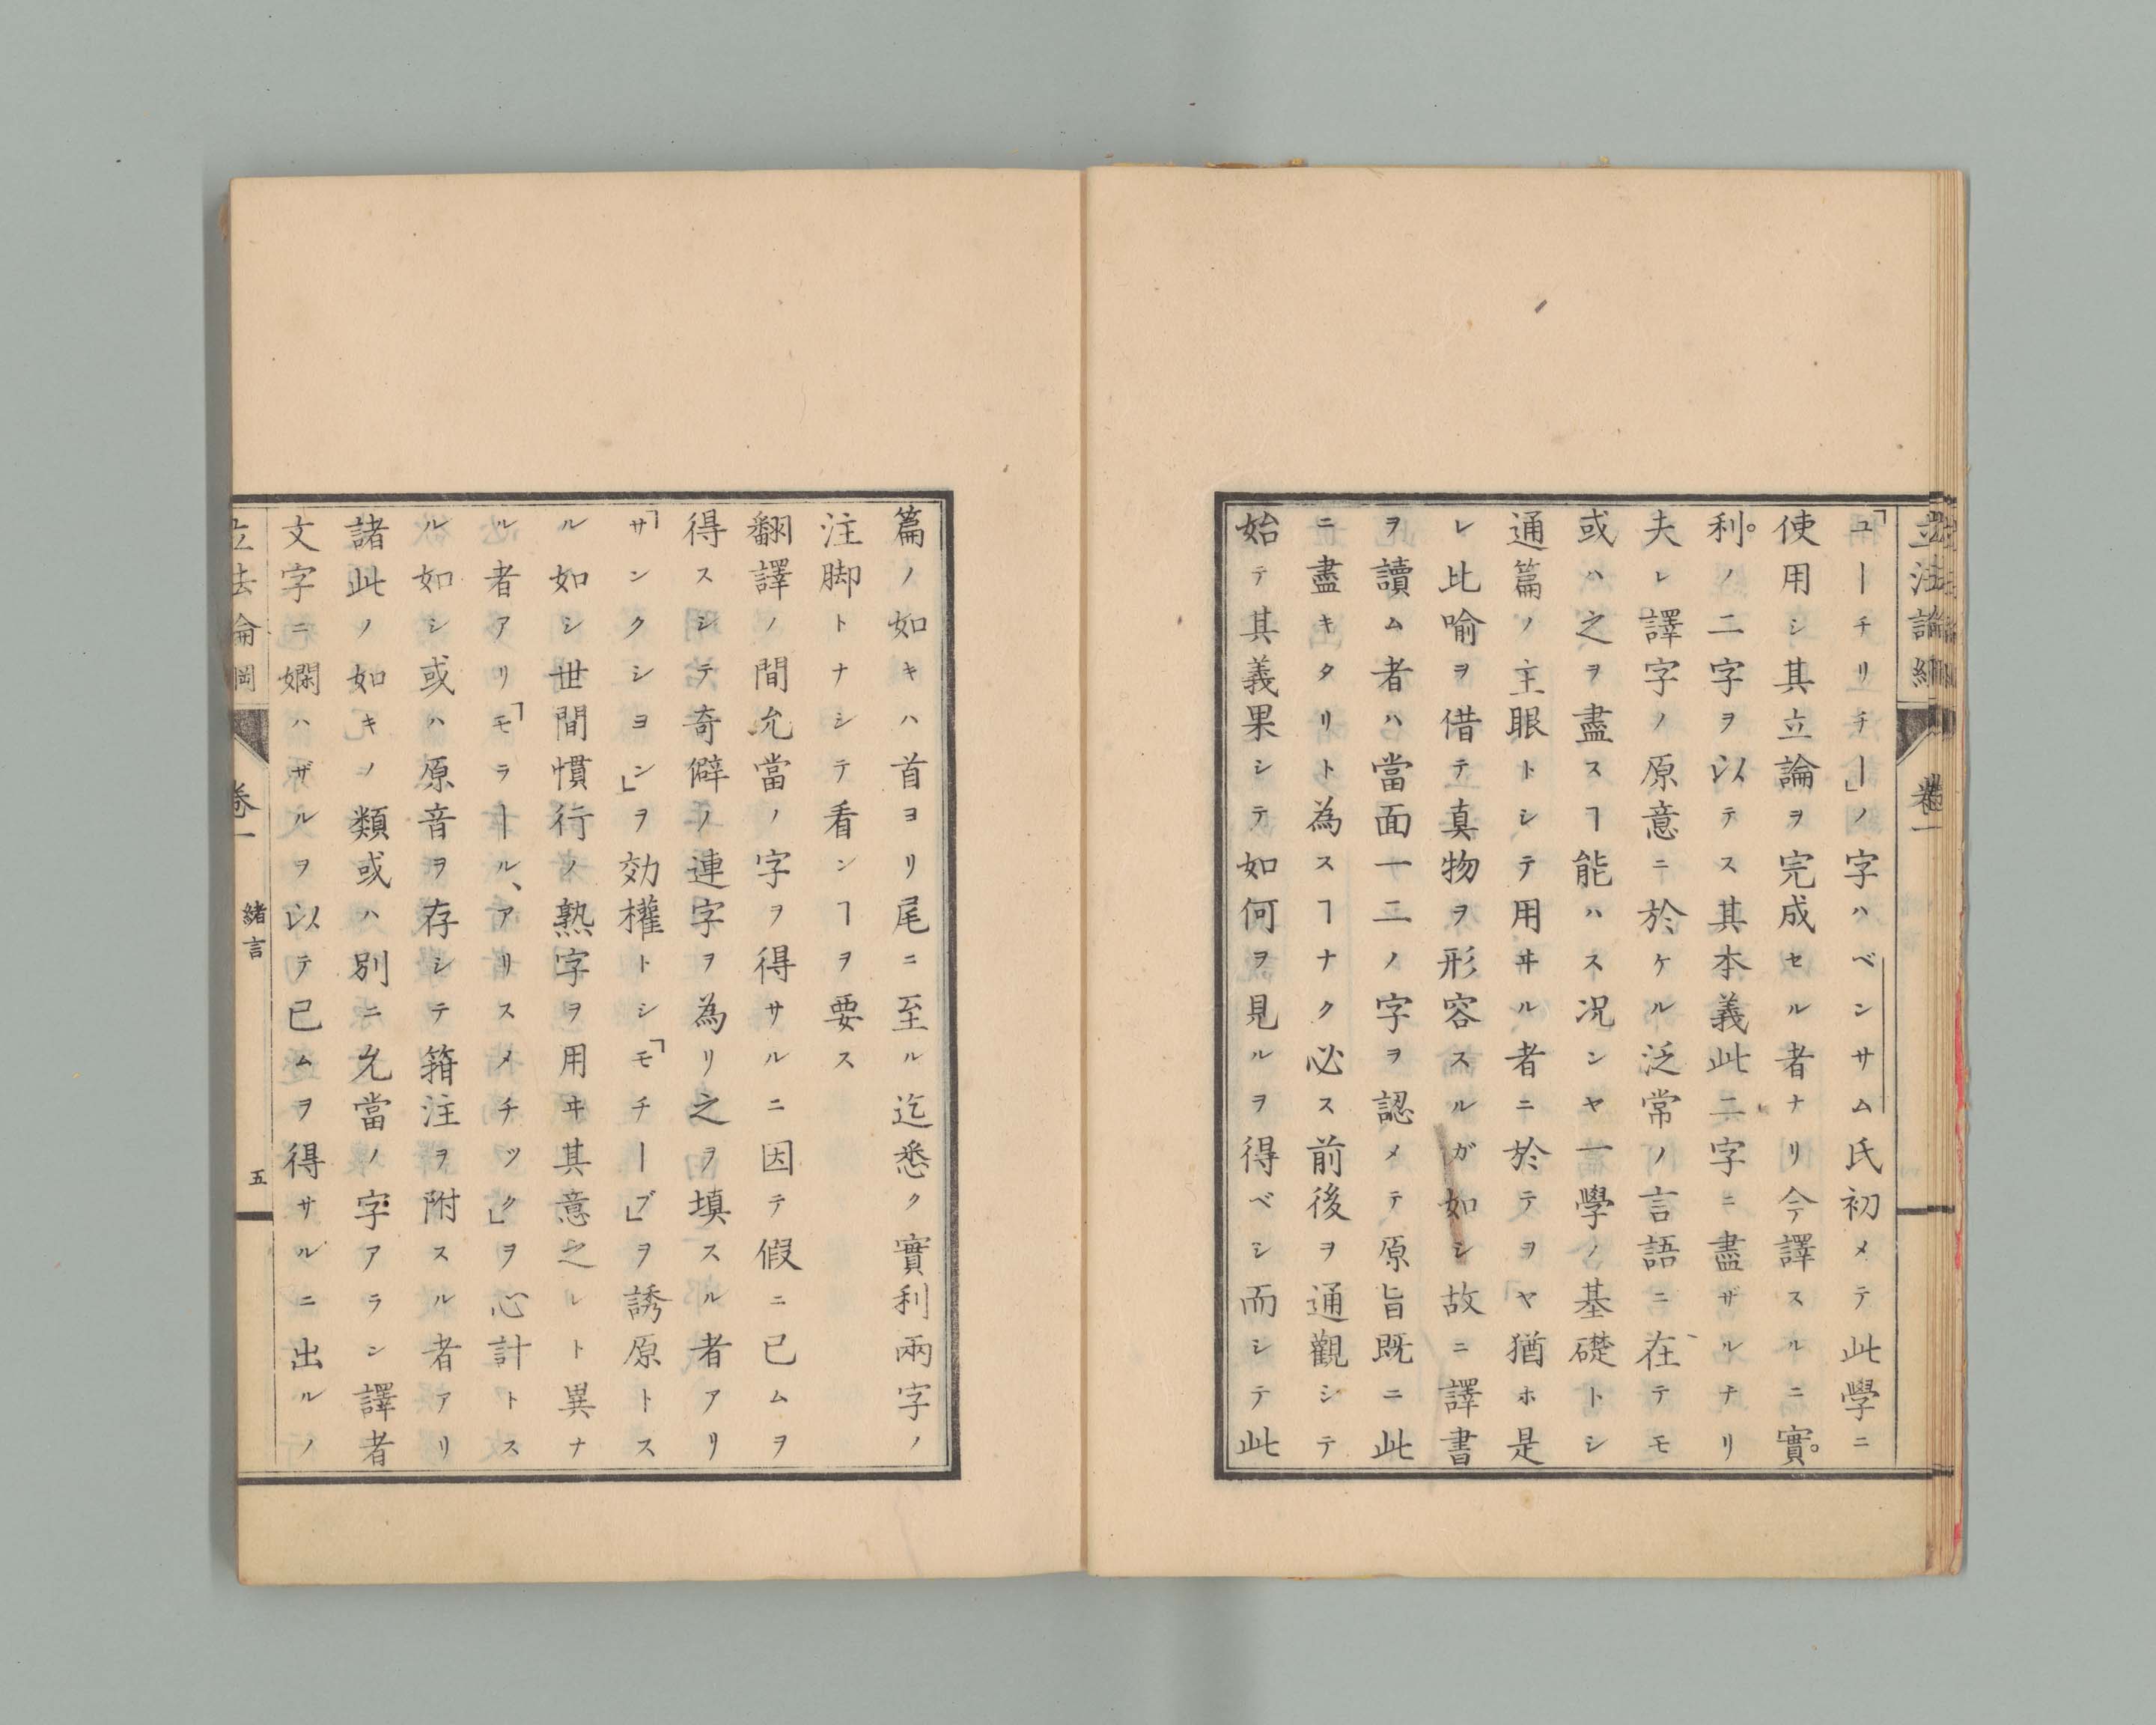 立法論綱
卷一
「ユーチリチー」ノ字ハベンサム氏初メテ此學ニ
使用シ其立論ヲ完成セル者ナリ今譯スルニ實
利ノ二字ヲ以テス其本義此二字ニ盡ザルナリ
夫レ譯字ノ原意ニ於ケル泛常ノ言語ニ在テモ
或ハ之ヲ盡スヿ能ハス况ンヤ一學ノ基礎トシ
通篇ノ主眼トシテ用ヰル者ニ於テヲヤ猶ホ是
レ比喩ヲ借テ真物ヲ形容スルガ如シ故ニ譯書
ヲ讀ム者ハ當面一二ノ字ヲ認メテ原旨既ニ此
ニ盡キタリト為スヿナク必ス前後ヲ通觀シテ
始テ其義果シテ如何ヲ見ルヲ得ベシ而シテ此
篇ノ如キハ首ヨリ尾ニ至ル迄悉ク實利兩字ノ
注脚トナシテ看ンヿヲ要ス
翻譯ノ間允當ノ字ヲ得サルニ因テ假ニ已ムヲ
得スシテ奇僻ノ連字ヲ為リ之ヲ填スル者アリ
「サンクシヨン」ヲ効權トシ「モチーブ」ヲ誘原トス
ル如シ世間慣行ノ熟字ヲ用ヰ其意之レト異ナ
ル者アリ「モラール、アリスメチック」ヲ心計トス
ル如シ或ハ原音ヲ存シテ箝注ヲ附スル者アリ
諸此ノ如キノ類或ハ別ニ允當ノ字アラン譯者
文字ニ嫻ハザルヲ以テ已ムヲ得サルニ出ルノ
立法論綱
卷一
緒言
五